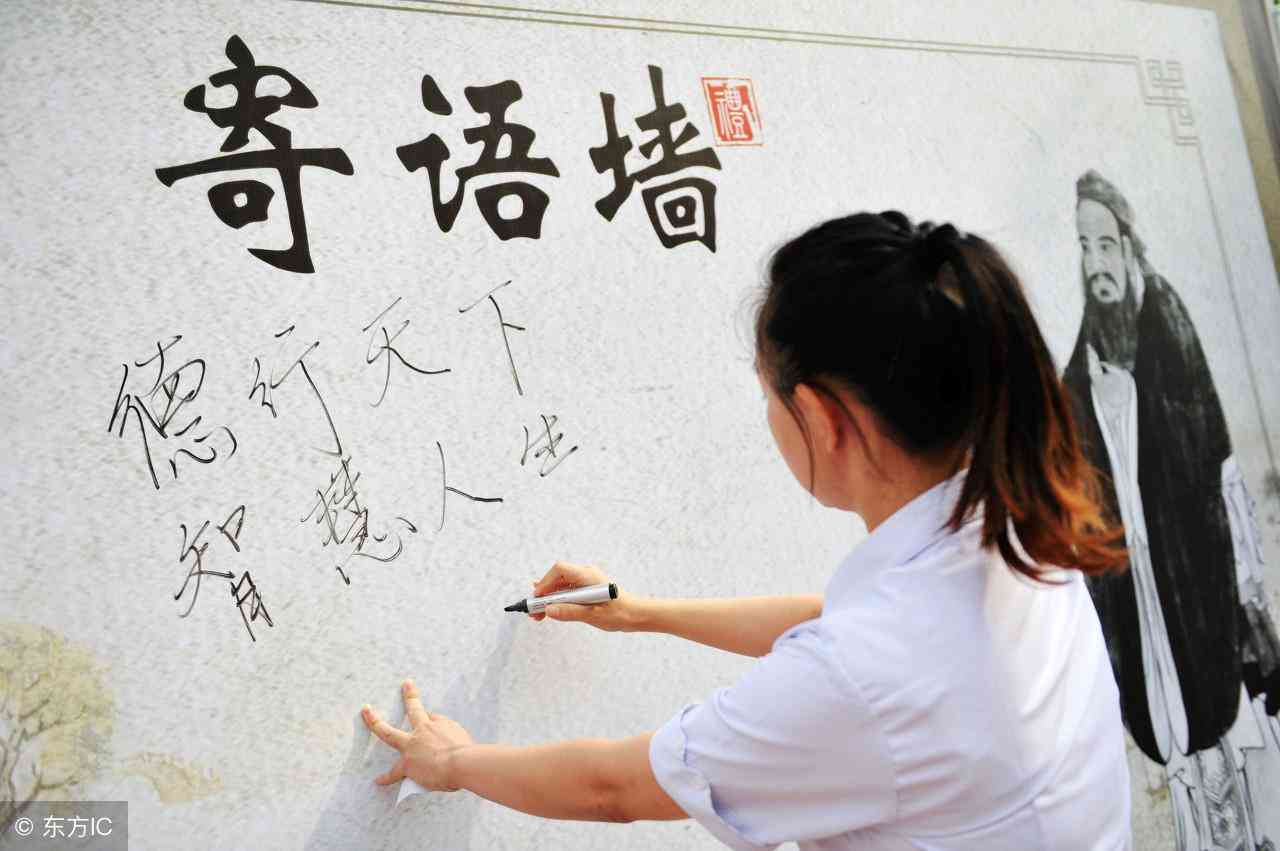 寄语墙
德行天下
智慧人生
© 东方IC